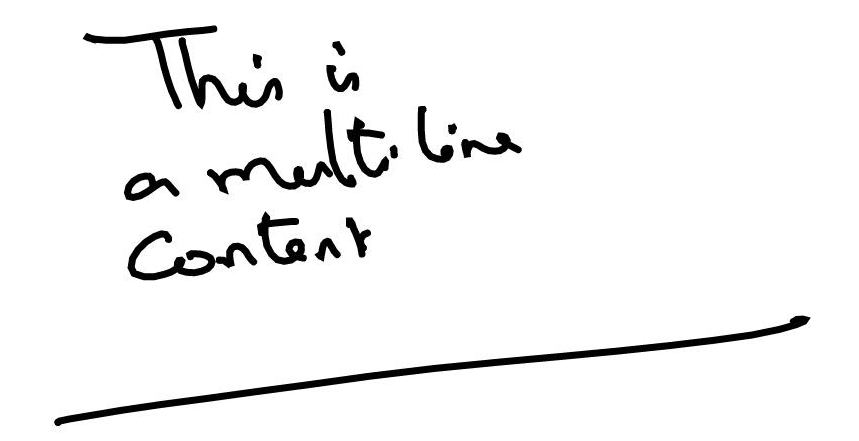 This is
a multiline
Content